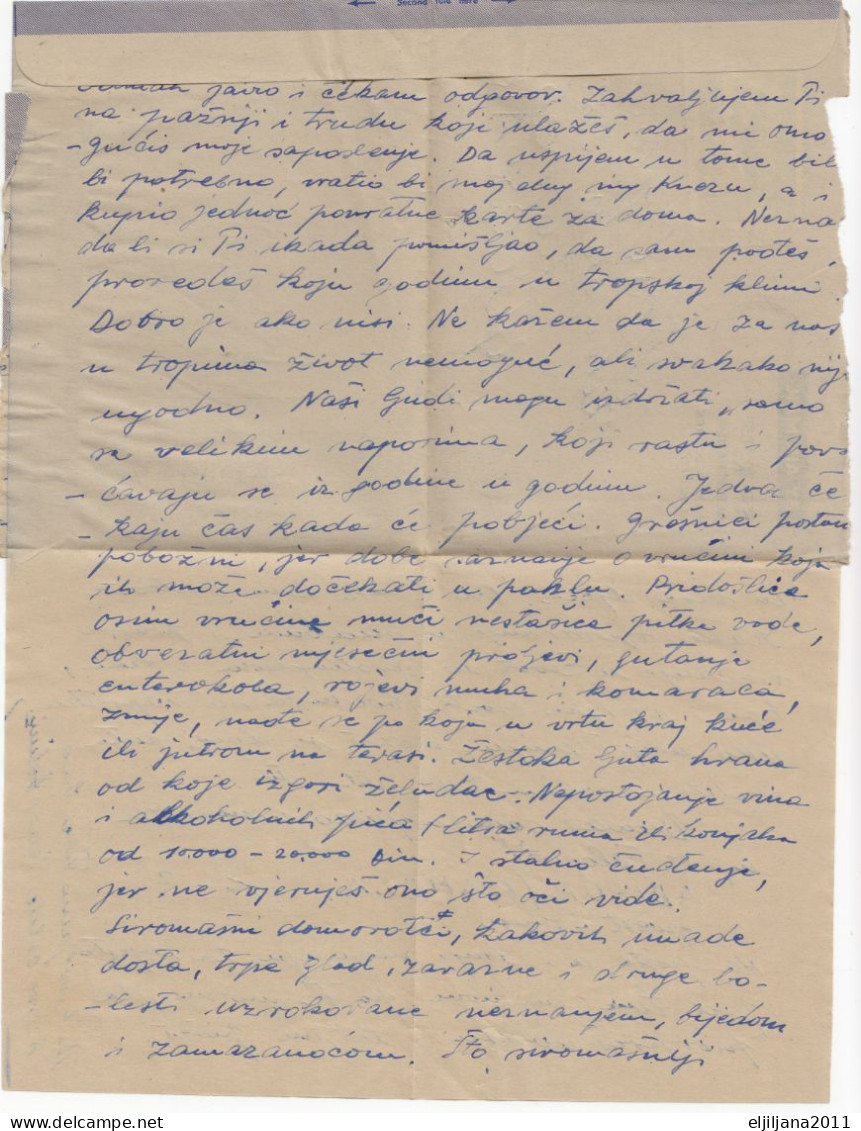 Second fold here
javio i čekam odgovor. Zahvaljujem Ti
na pažnji i trudu koji ulažeš, da mi omo
-gućiš moje zaposlenje. Da uspijem u tome bil
bi potrebno, vratio bi moj dug ing Knezu, a i
kupio jednoć povratne karte za doma. Nezna
da li si Ti ikada pomišljao, da sam pođeš,
provedeš koju godinu u tropskoj klimi
Dobro je ako nisi. Ne kažem da je za nas
u tropima život nemoguć, ali svakako nije
ugodno. Naši ljudi mogu izdržati samo
sa velikim naporima, koji rastu i pove
-ćavaju se iz godine u godinu. Jedva če
-kaju čas kada će pobjeći. Grešnici postan
pobožni, jer dobe saznanje o vrućini koja
ih može dočekati u paklu. Pridošlice
osim vrućine muči nestašica pitke vode,
obvezatni mjesečni proljevi, gutanje
enterokola, rojevi muha i komaraca,
zmije, nađe se po koja u vrtu kraj kuće
ili jutrom na terasi. Žestoka ljuta hrana
od koje izgori želudac. Nepostojanje vina
i alkoholnih pića 1 litra ruma ili konjaka
od 10.000 – 20.000 Din. I stalno čuđenje,
jer ne vjeruješ ono što oči vide.
Siromašni domoroci, kakovih imade
dosta, trpe glad, zarazne i druge bo-
-lesti uzrokovane neznanjem, bijedom
i zamazanoćom. Što siromašniji
eljiljana2011